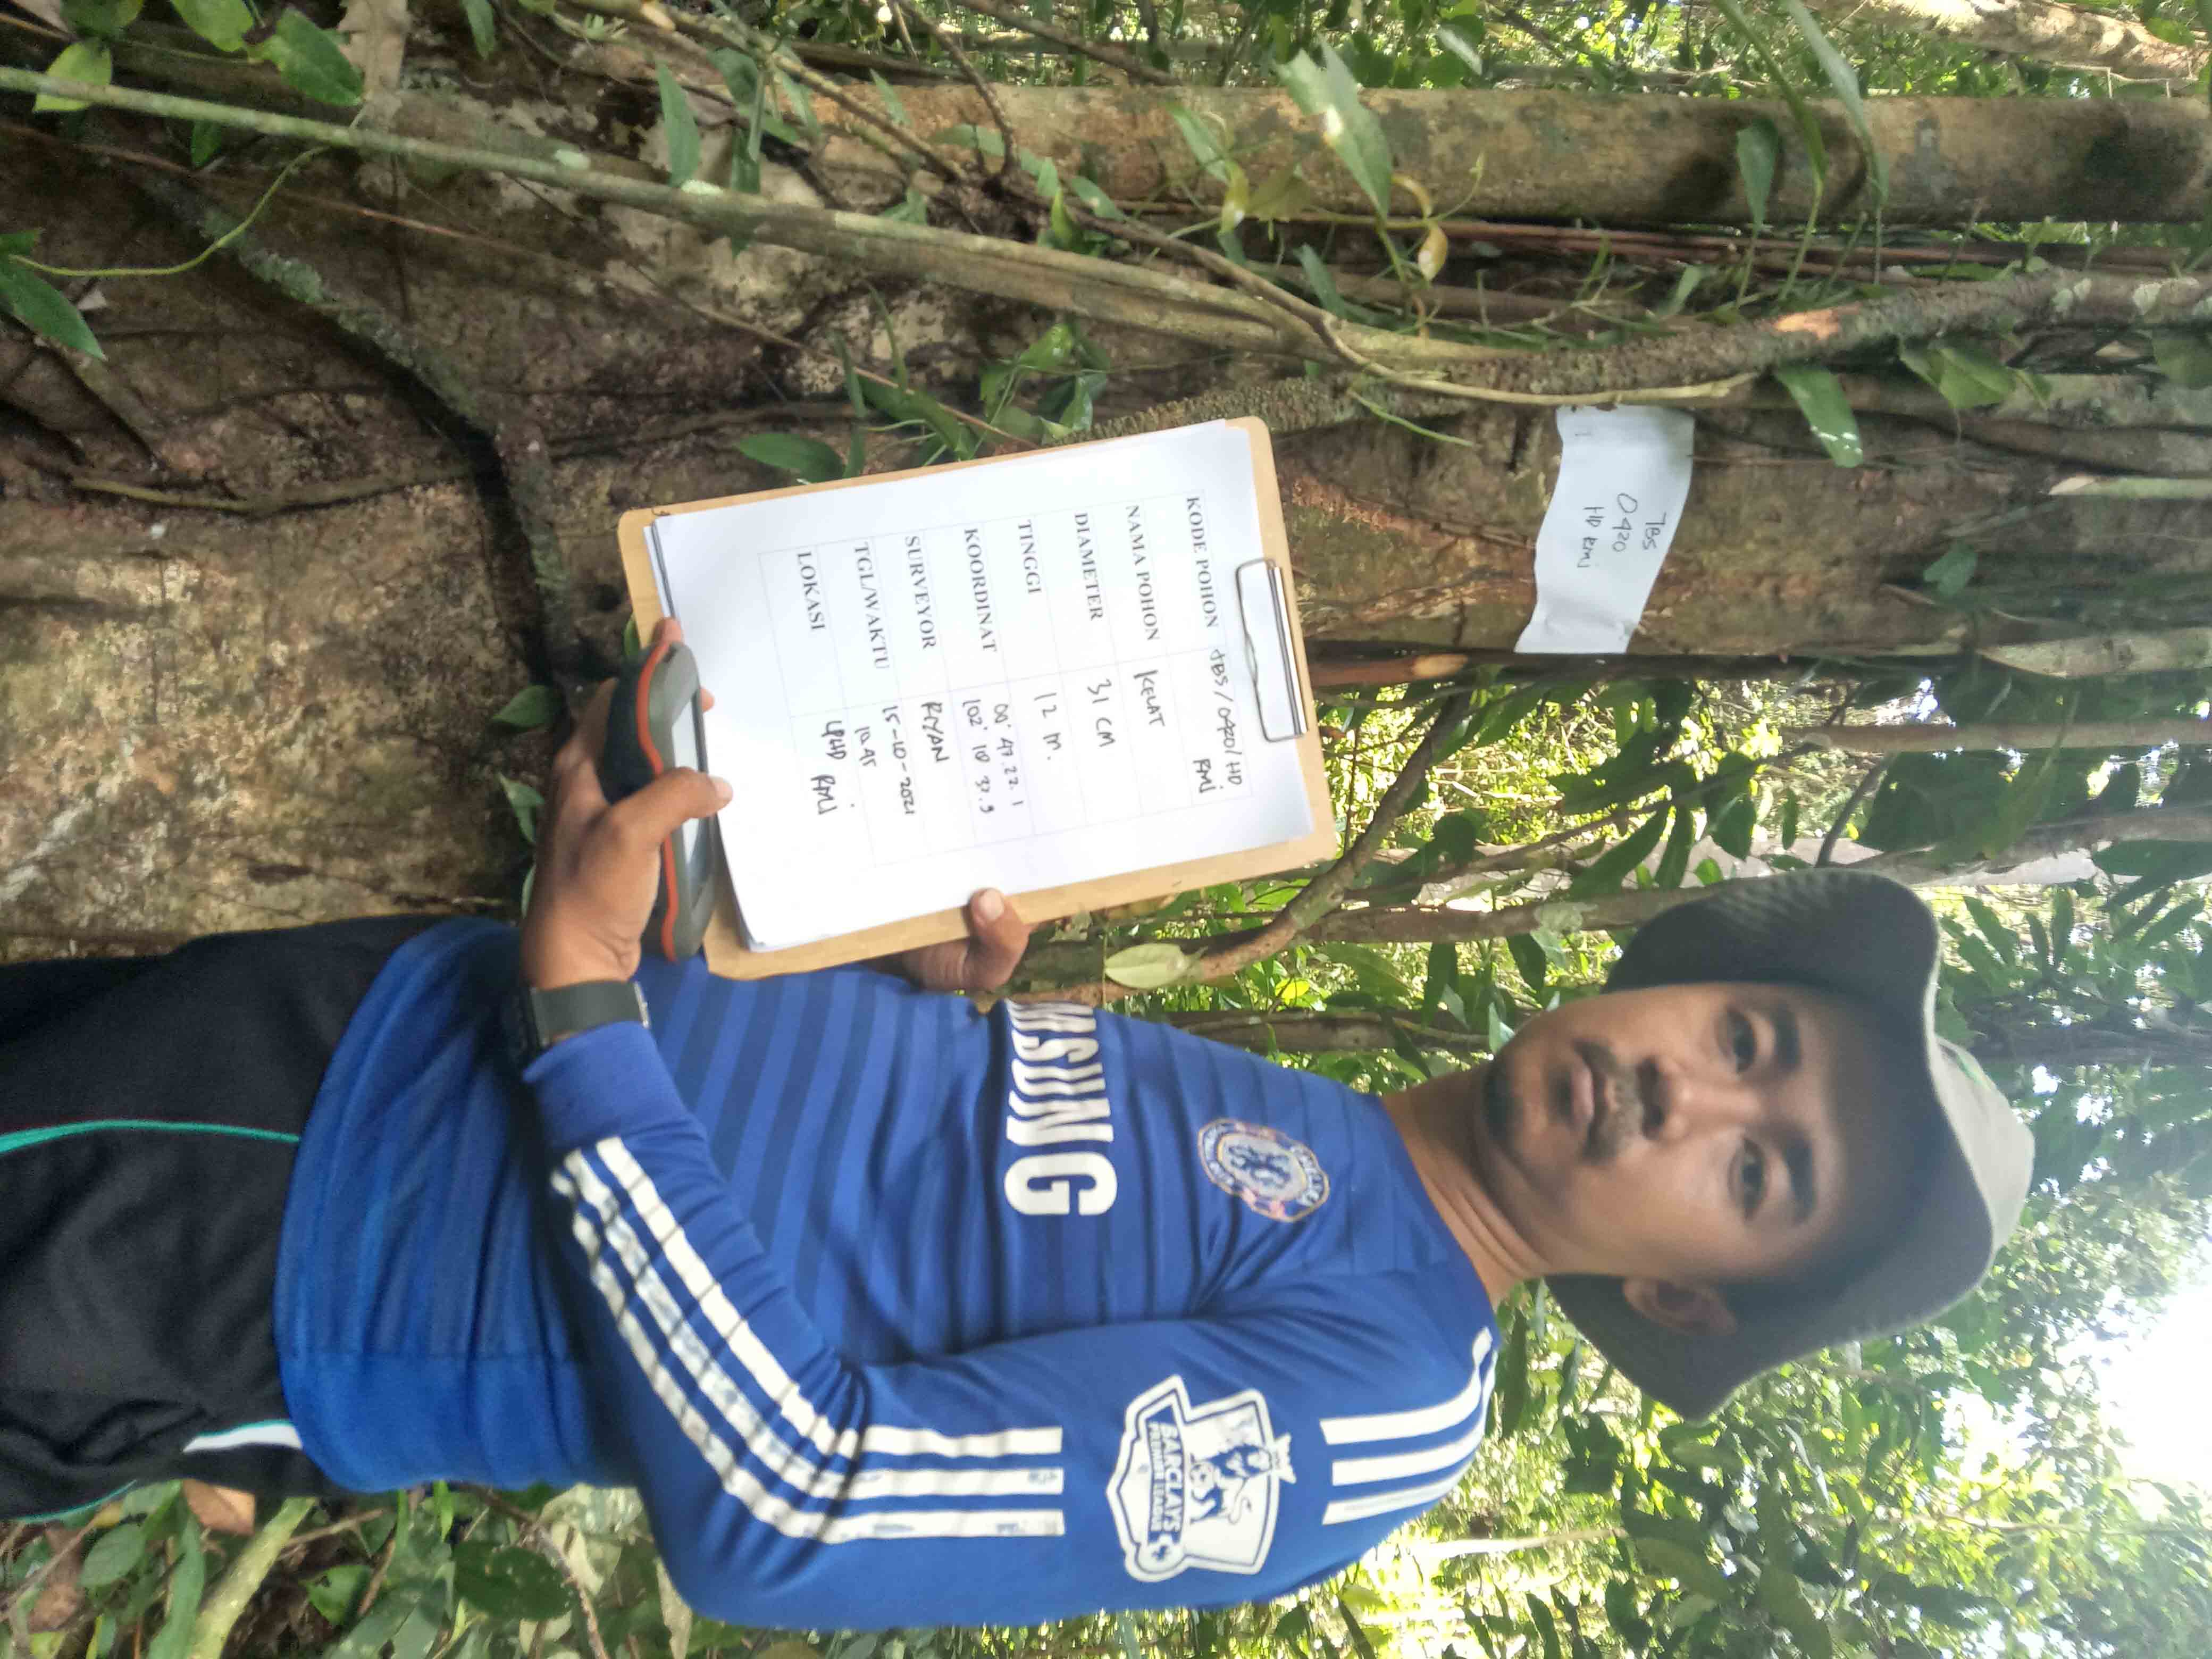 TBS
0420
HD RMJ
KODE POHON TBS/0420/HD RMJ
NAMA POHON KELAT
DIAMETER 31 CM
TINGGI 12 M.
KOORDINAT 00° 47. 22. 1
102° 10 37.9
SURVEYOR RIYAN
TGL/WAKTU 15-10-2021
10.45
LOKASI LPHD RMJ
MSUNG
CHELSEA
FOOTBALL CLUB
BARCLAYS
PREMIER LEAGUE